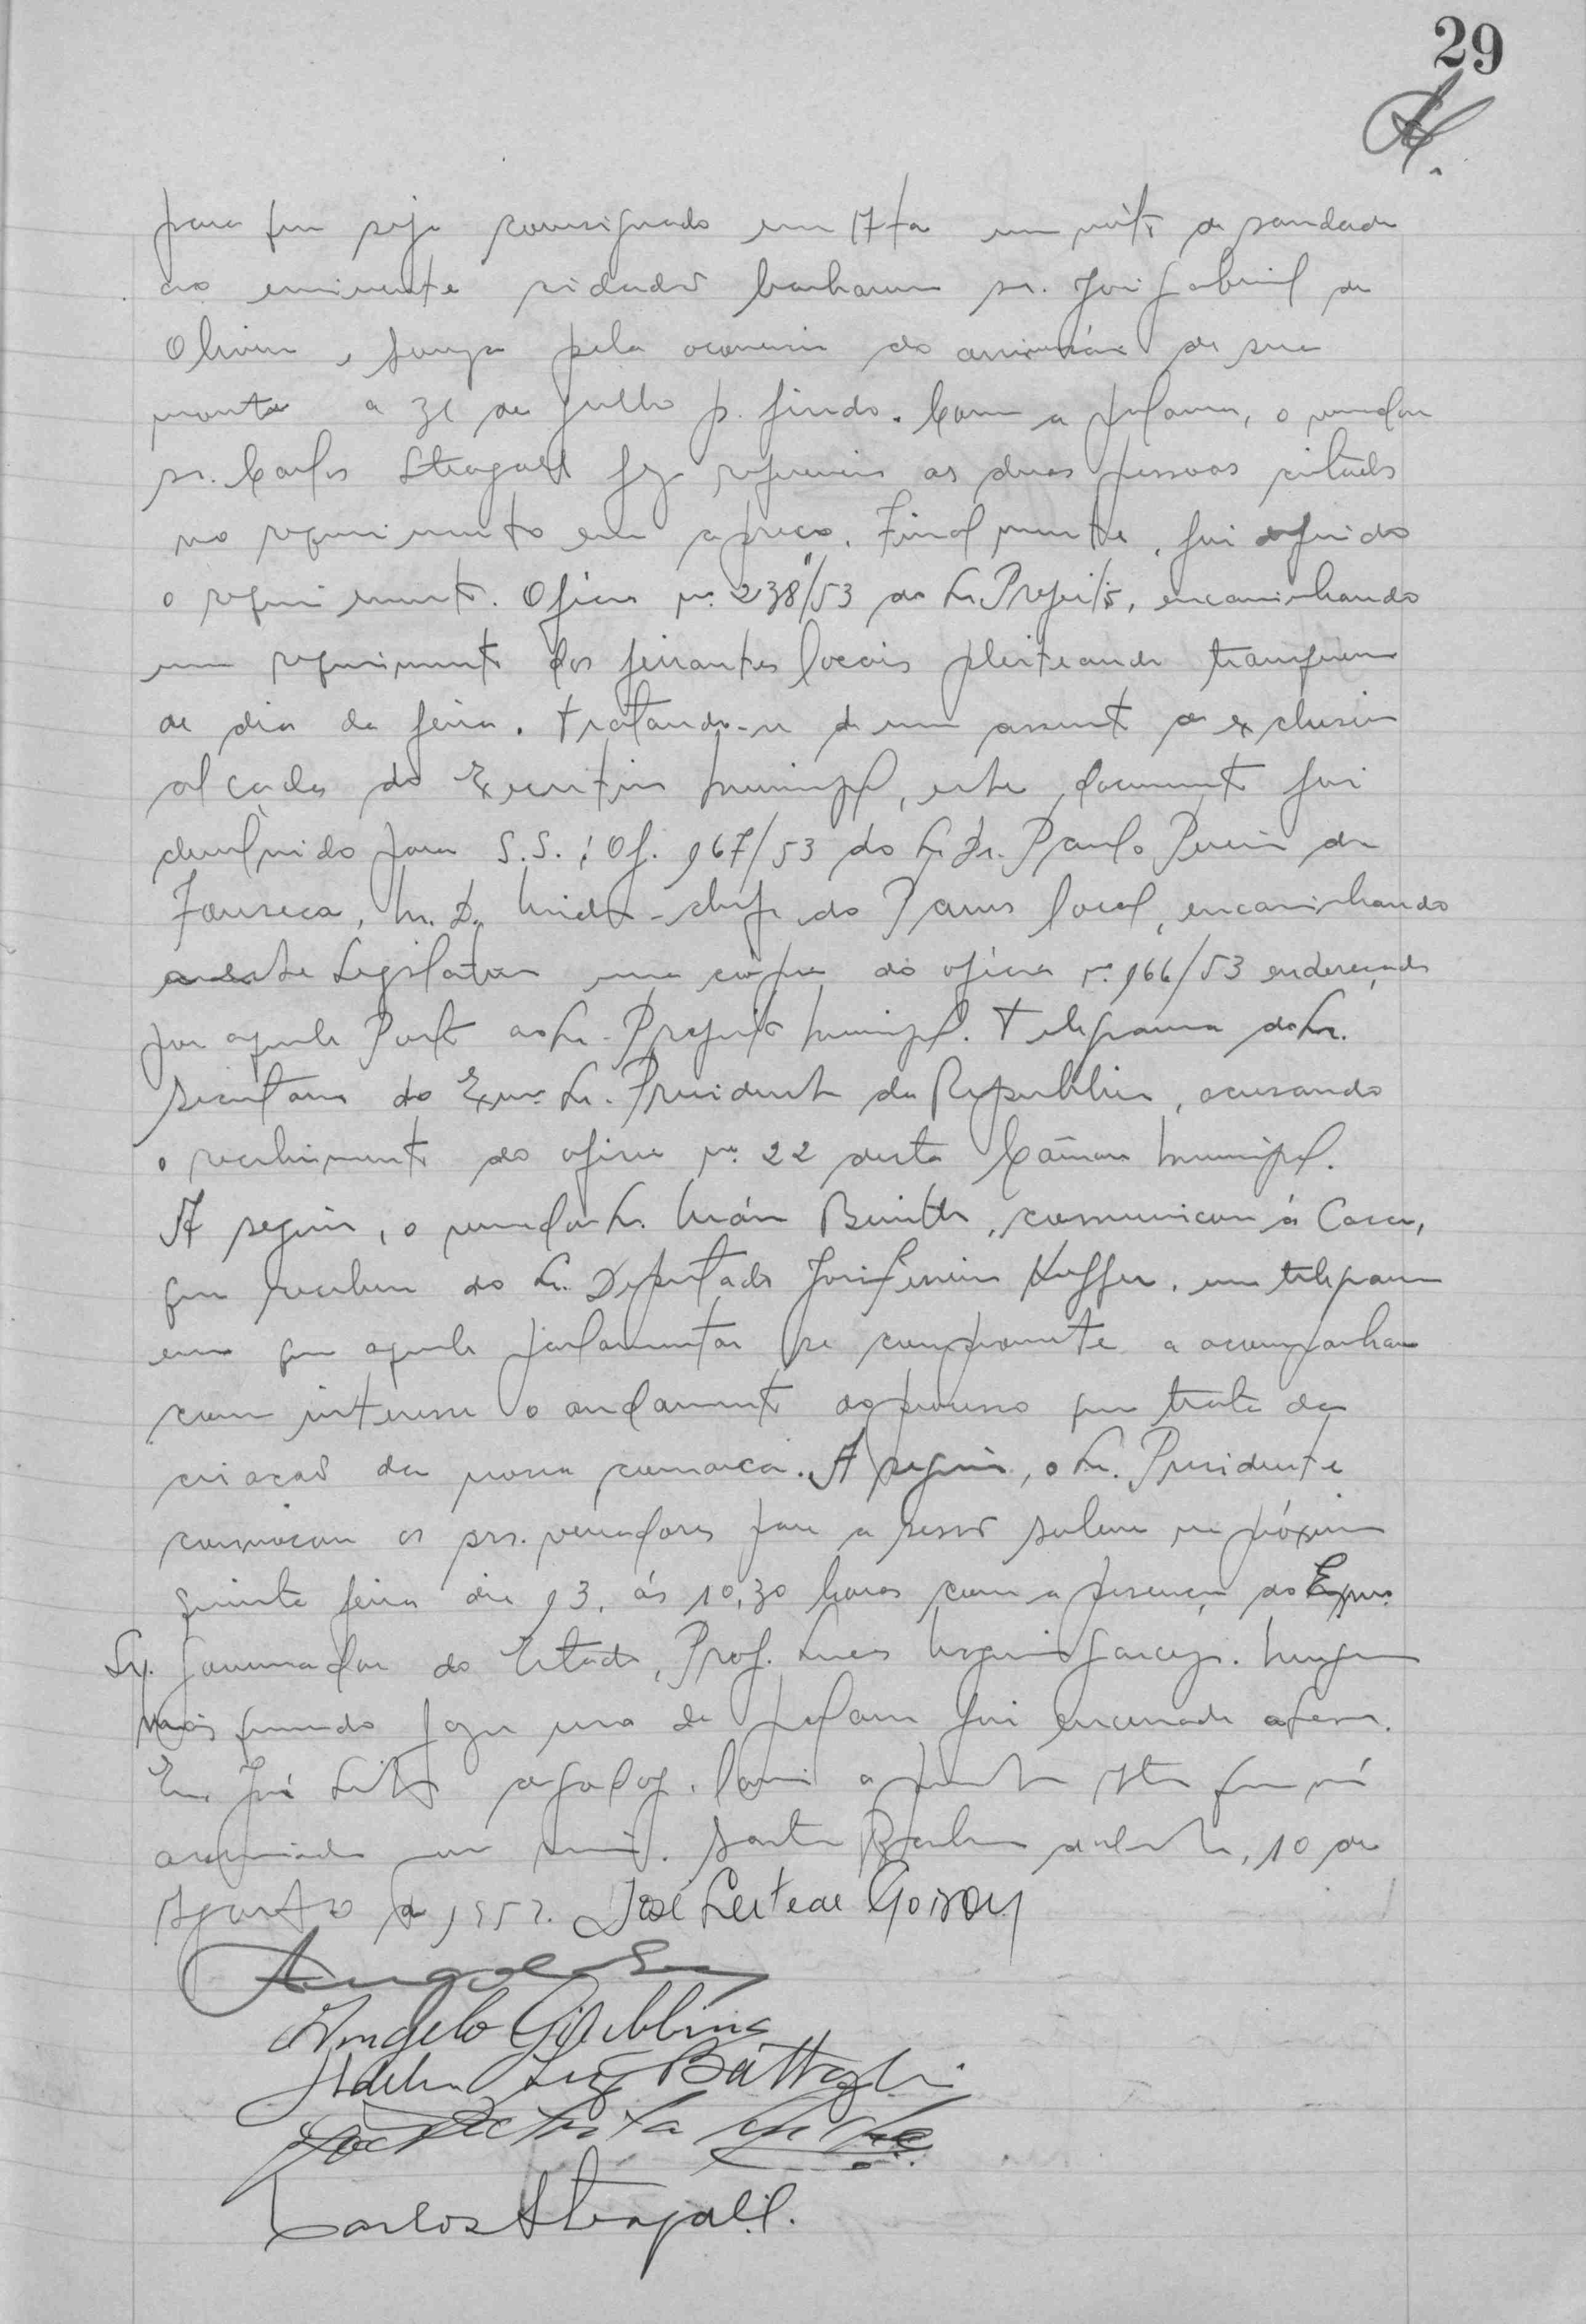 29
para que seja consignado em Ata um voto de saudade
ao eminente cidadão bacharem sr. José Gabriel de
Oliveira e Souza pela ocorrencia do aniversário de sua
morte a 31 de Julho p. findo. Com a palavra, o vereador
sr. Carlos Steagall fez referencia as duas pessoas citadas
no requerimento em apreço. Finalmente, foi deferido
o requerimento. Oficio nº 238/53 do Sr. Prefeito, encaminhando
um requerimento dos feirantes locais pleiteando transferencia
de dia da feira. Tratando-se de um assunto de exclusiva
alçada do Executivo Municipal, este documento foi
devolvido para S.S.; Of. 967/53 do Sr. Dr. Paulo Pereira da
Fonseca, M. D. Médico-chefe do Pams local, encaminhando
a este Legislativo uma cópia do oficio nº 966/53 endereçado
por aquele Posto ao Sr. Prefeito Municipal. Telegrama do Sr.
Secretario do Exmo. Sr. Presidente da Republica, acusando
o recebimento do oficio nº 22 desta Câmara Municipal.
A seguir, o vereador Sr. Mário comunicou á Casa,
que recebeu do Sr. Deputado José Ferreira Keffer, um telegrama
em que aquele parlamentar se compromete a acompanhar
com interesse o andamento do processo que trata da
criação da nossa comarca. A seguir, o Sr. Presidente
convocou os srs. vereadores para a sessão solene na próxima
quinta feira dia 13, ás 10,30 horas com a presença do Exmo.
Sr. Governador do Estado, Prof. Lucas Nogueira Garcez. Ninguem
mais querendo fazer uso da palavra foi encerrada a sessão.
Eu, José Leite de Godoy, lavrei a presente Ata que vai
assinada por mim. Santa Barbara d'Oeste, 10 de
Agosto de 1953. José Leite de Godoy
Angelo Giubbina
Luiz Battagli
Carlos Steagall.